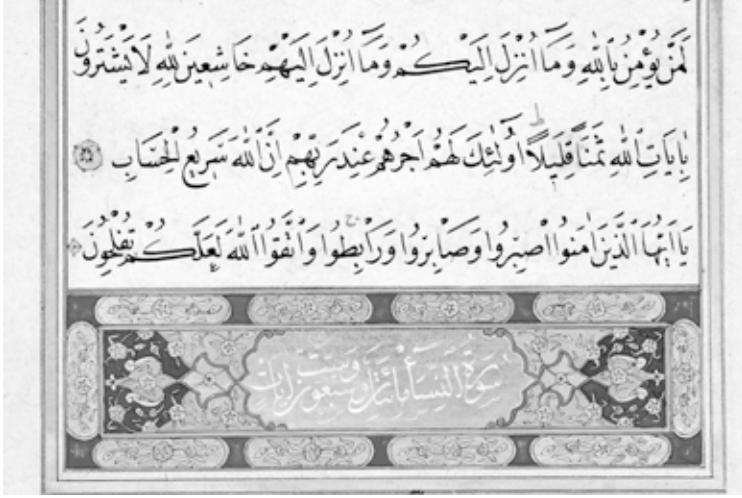 لَمَنْ يُؤْمِنُ بِاللّٰهِ وَمَا اُنْزِلَ اِلَيْكُمْ وَمَا اُنْزِلَ اِلَيْهِمْ خَاشِعِينَ لِلّٰهِ لَا يَشْتَرُونَ
بِاٰيَاتِ اللّٰهِ ثَمَنًا قَلِيلًا اُولٰئِكَ لَهُمْ اَجْرُهُمْ عِنْدَ رَبِّهِمْ اِنَّ اللّٰهَ سَرِيعُ الْحِسَابِ
يَا اَيُّهَا الَّذِينَ اٰمَنُوا اصْبِرُوا وَصَابِرُوا وَرَابِطُوا وَاتَّقُوا اللّٰهَ لَعَلَّكُمْ تُفْلِحُونَ
سورة النساء مائة وست وسبعون اٰيات